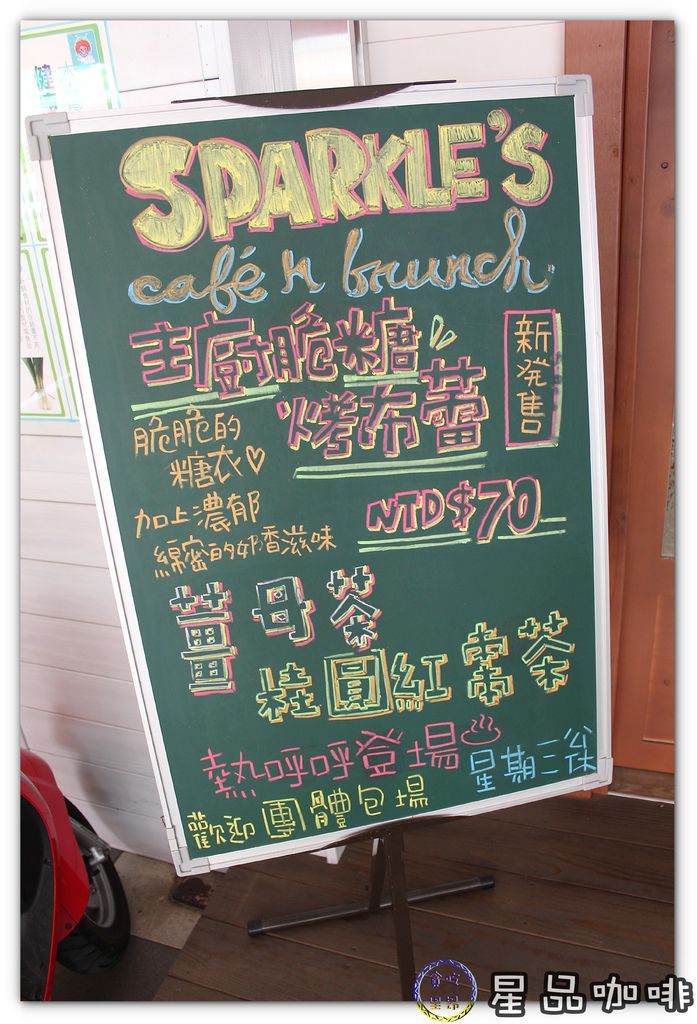 SPARKLE'S
café n brunch
主廚脆糖
烤布蕾
新発售
脆脆的
糖衣♡
加上濃郁
綿密的奶香滋味
NTD$70
薑母茶
桂圓紅棗茶
熱呼呼登場♨
星期三公休
歡迎團體包場
星品咖啡